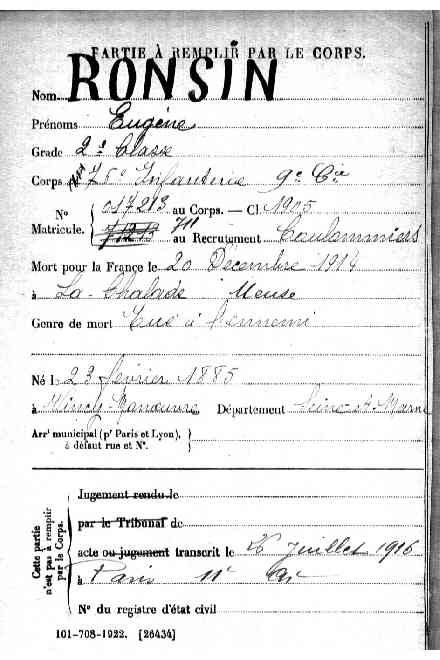 PARTIE À REMPLIR PAR LE CORPS.
Nom RONSIN
Prénoms Eugène
Grade 2e Classe
Corps 75e Infanterie 9e Cie
No Matricule. 017213 au Corps. — Cl. 1905
711 au Recrutement Coulommiers
Mort pour la France le 20 Décembre 1914
à La Chalade Meuse
Genre de mort Tué à l'ennemi
Né le 23 février 1885
à Département Seine-et-Marne
Arrt municipal (pr Paris et Lyon),
à défaut rue et No.
Cette partie n'est pas à remplir par le Corps.
Jugement rendu le
par le Tribunal de
acte ou jugement transcrit le 26 Juillet 1916
à Paris 11e Ar
No du registre d'état civil
101-708-1922. [26434]